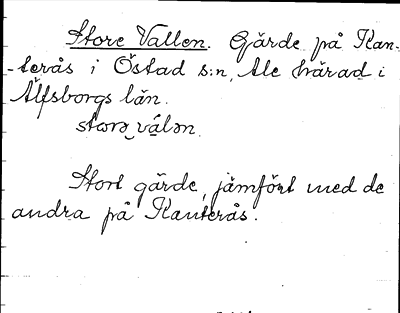 Store Vallen. Gärde på Kan-
-terås i Östad s:n, Ale härad i
Älfsborgs län.
storəválən.
Stort gärde, jämfört med de
andra på Kanterås.